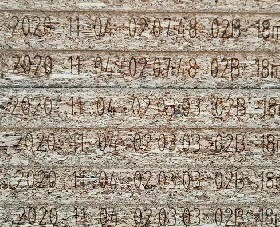 2020 11 04 02:07:18 02B 18m
2020 11 04 02:07:18 02B 18m
2020 11 04 02:03:03 02B 18m
2020 11 04 02:03:03 02B 18m
2020 11 04 02:03:03 02B 18m
2020 11 04 02:03:03 02B 18m